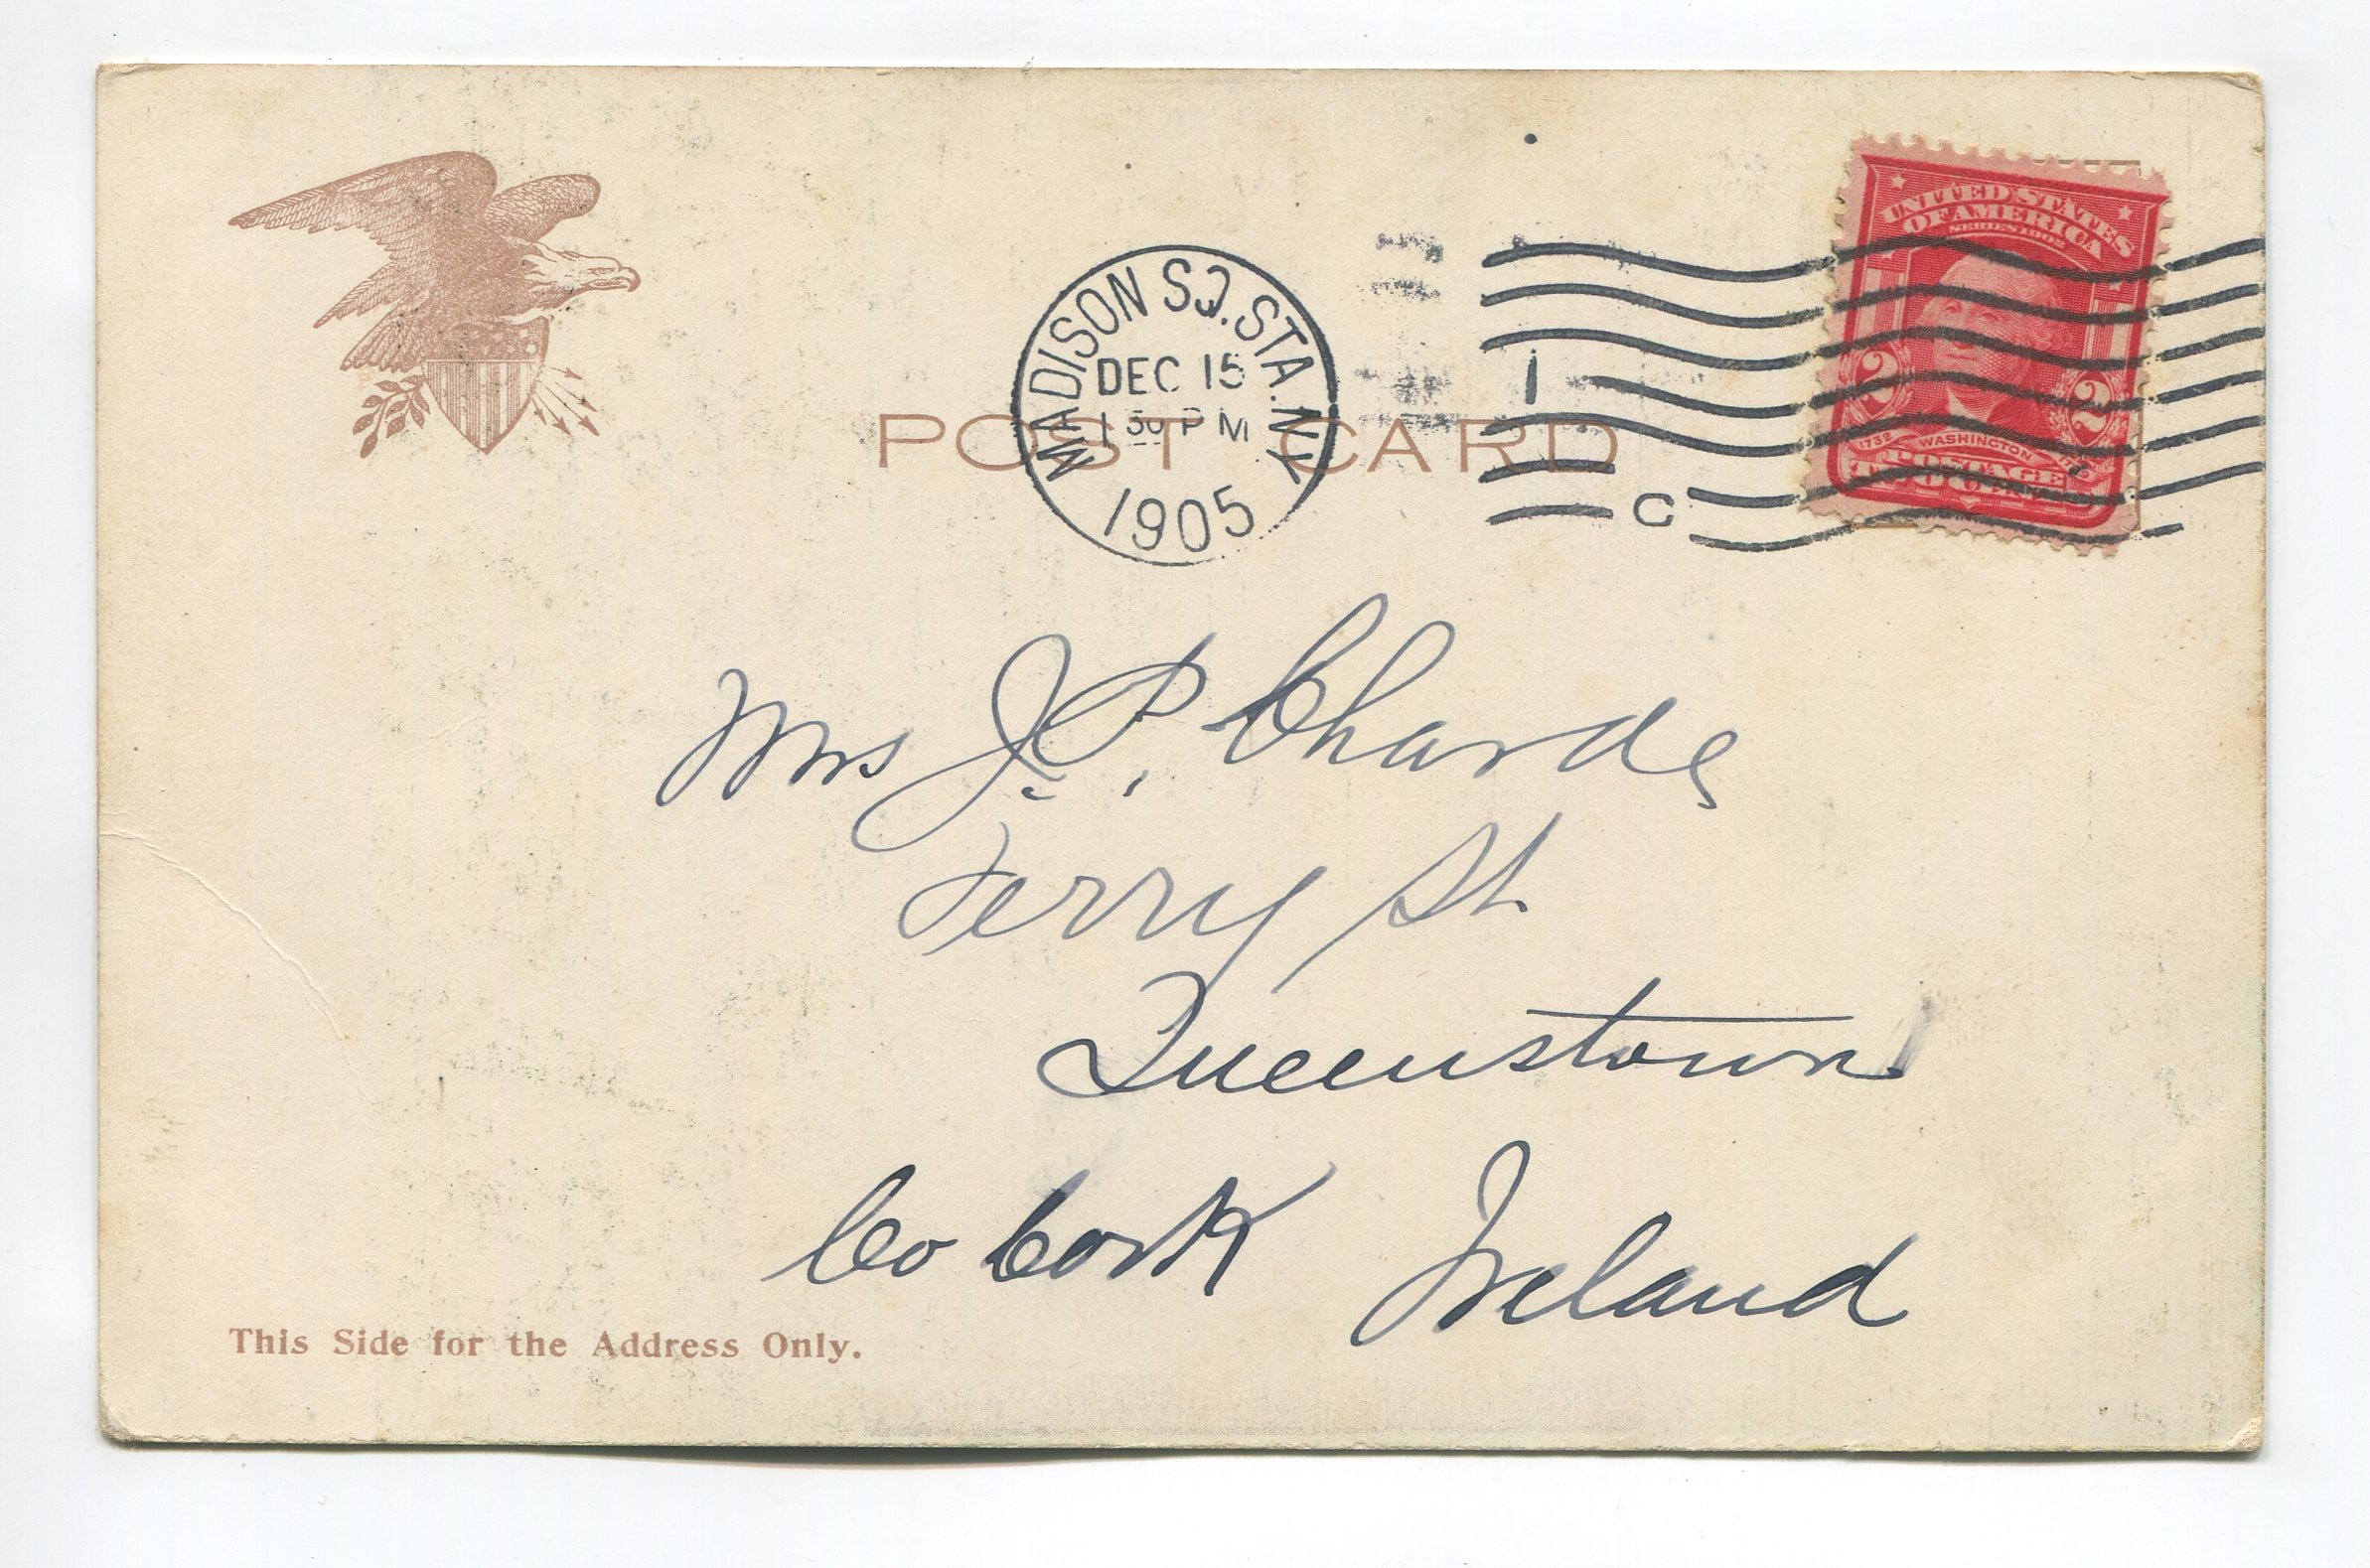 UNITED STATES
OF AMERICA
SERIES 1902
2 2
1732 WASHINGTON
POSTAGE
MADISON SQ. STA. N.Y.
DEC 15
1 30 P M
1905
1
C
POST CARD
Mrs J. P. Charde
Ferry St.
Queenstown
Co Cork Ireland
This Side for the Address Only.